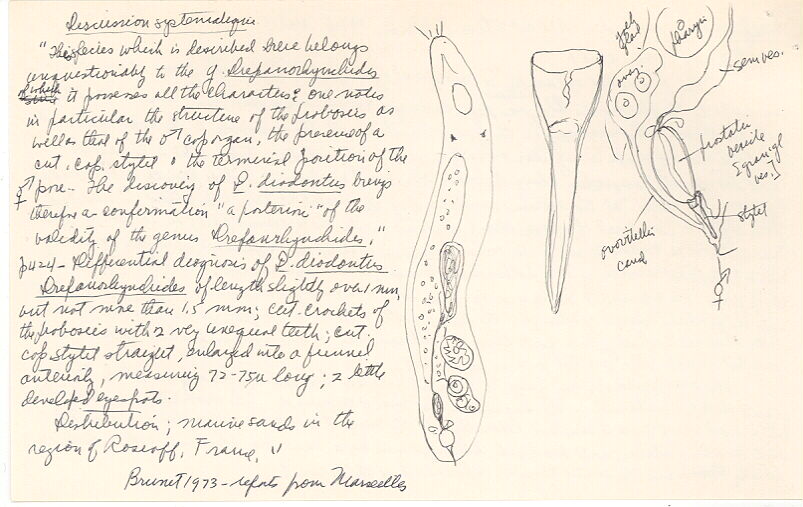 Discussion systematique
"This species which is described here belongs
unquestionably to the g. Drepanorhynchides
of which it possesses all the characters; one notes
in particular the structure of the proboscis as
well as that of the ♂ cop organ, the presence of a
cut. cop. stylet & the terminal position of the
⚥ pore — The discovery of D. diodontus brings
therefore a confirmation "a posteriori" of the
validity of the genus Drepanorhynchides."
p 424 — Differential diagnosis of D. diodontus
Drepanorhynchides of length slightly over 1 mm,
but not more than 1.5 mm; cut. crochets of
the proboscis with 2 very unequal teeth; cut.
cop. stylet straight, enlarged into a funnel
anteriorly, measuring 72-75µ long; 2 little
developed eyespots.
Distribution; marine sands in the
region of Roscoff, France, "
Brunet 1973 — reports from Marseilles
ov.
pharynx
sem ves.
prostatic
vesicle
[granul
ves.]
stylet
ovovitellin
canal
⚥